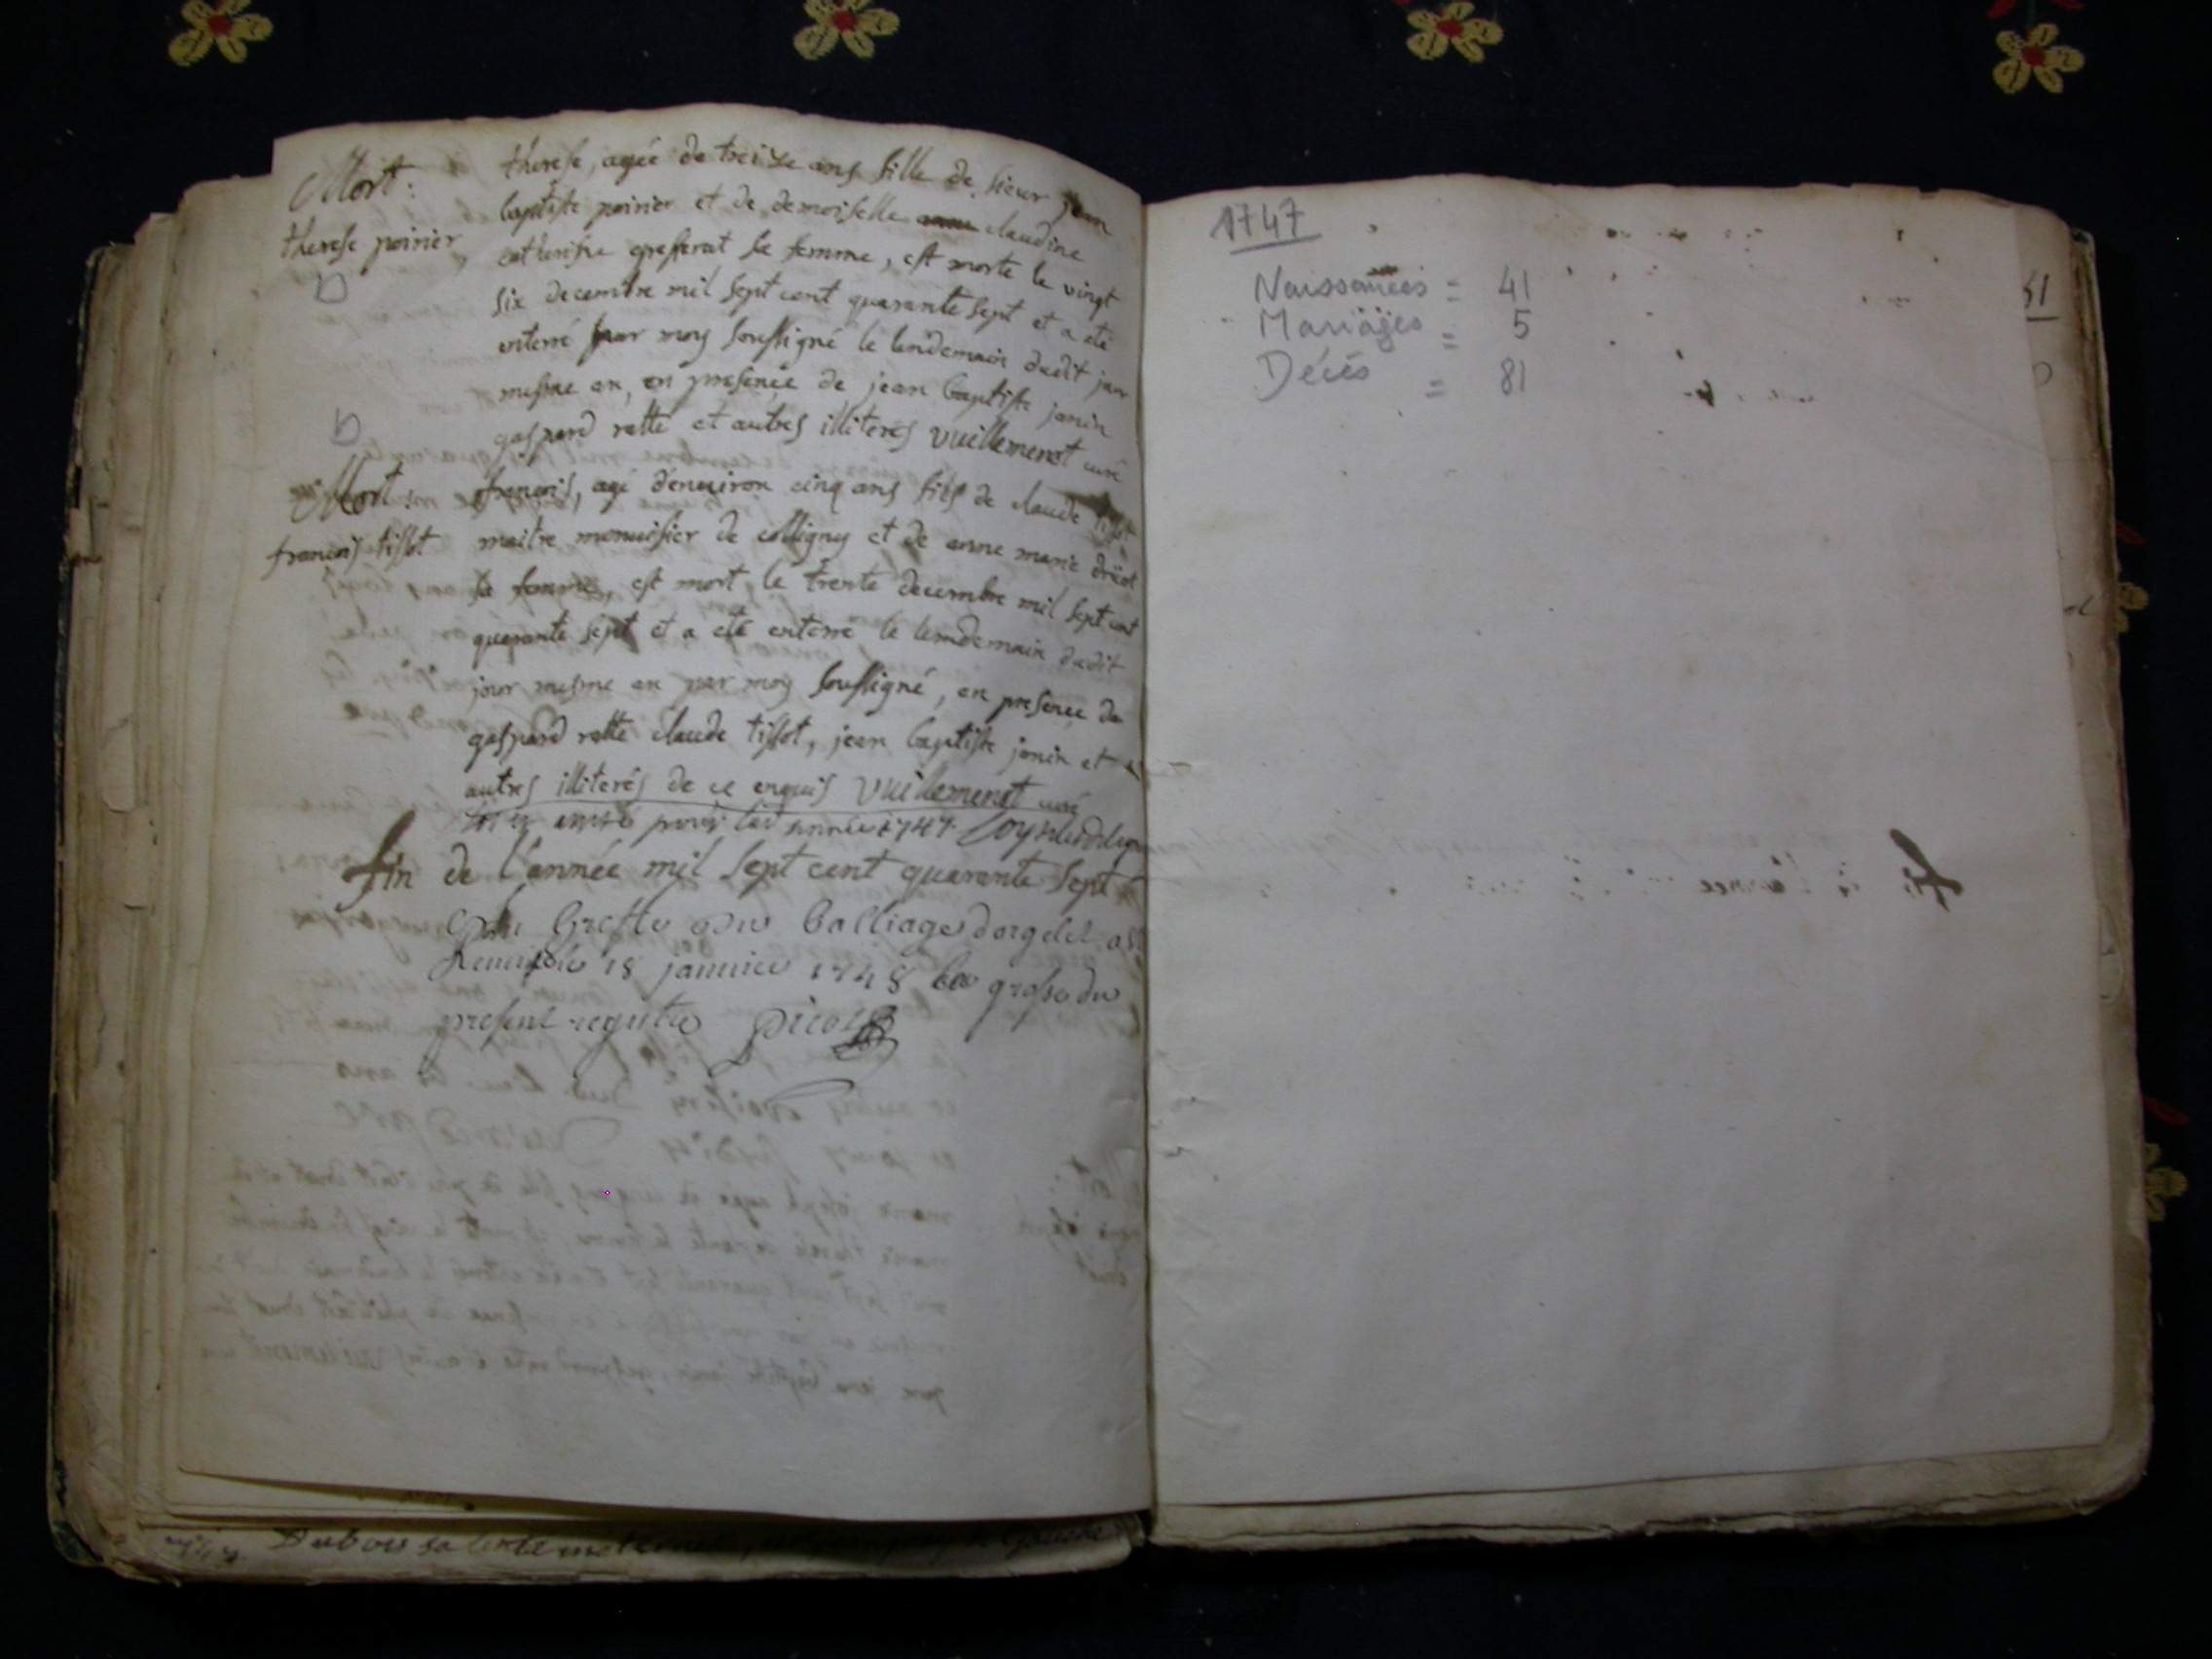 Mort:
therese poirier
therese, agée de treize ans fille de sieur jean
baptiste poirier et de demoiselle claudine
catherine sa femme, est morte le vingt
six decembre mil sept cent quarante sept et a eté
enterré par moy soussigné le lendemain dudit jour
mesme an, en presence de jean baptiste janin
gaspard ratte et autres illiterés vuillemenot curé
Mort:
francois tissot
francois, agé d'enuiron cinq ans fils de claude tissot
maitre menuisier de colligny et de anne marie
sa femme, est mort le trente decembre mil sept cent
quarante sept et a eté enterré le lendemain dudit
jour mesme an par moy soussigné, en presence de
gaspard ratte claude tissot, jean baptiste janin et
autres illiterés de ce enquis vuillemenot curé
pour année 1747
fin de l'année mil sept cent quarante sept
Greffe du balliage dorgelet a
18 januier 1748 la grosse du
present registre picot
1747
Naissances = 41
Mariages = 5
Décés = 81